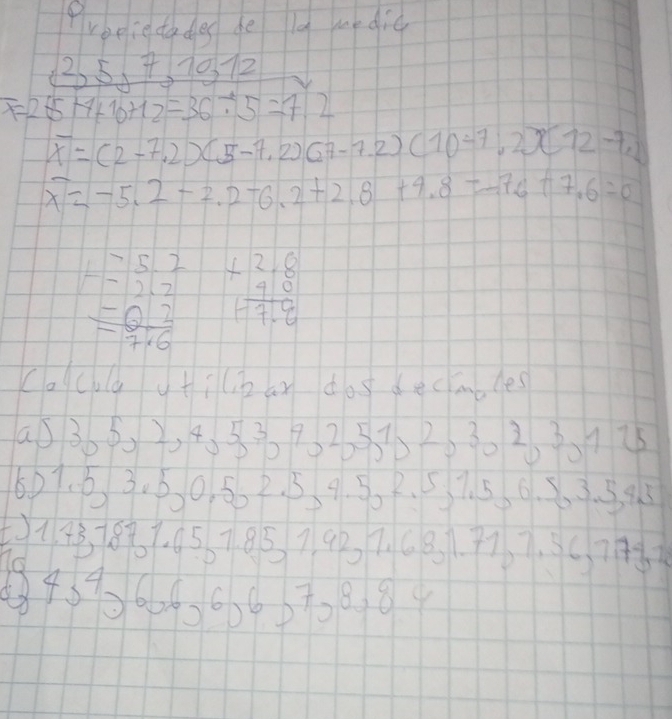 Propiedades de la media
2, 5, 7, 10, 12
x̄=2+5+7+10+12=36÷5=7.2
x̄=(2-7.2)(5-7.2)(7-7.2)(10-7.2)(12-7.2
x̄=-5.2-2.2-0.2+2.8 +4.8=-7.6+7.6=0
-5.2 +2.8
-2.2 4.8
-0.2 +7.6
-7.6
Calcula utilizar dos decimales
a) 3, 5, 2, 4, 5, 3, 4, 2, 5, 1, 2, 3, 2, 3, 1
b) 1.5, 3.5, 0.5, 2.5, 4.5, 2.5, 1.5, 6.5, 3.5, 4.5
c) 1.73, 1.87, 1.65, 1.85, 1.92, 1.68, 1.71, 1.56,
d) 4, 4, 6, 6, 6, 6, 7, 8, 8